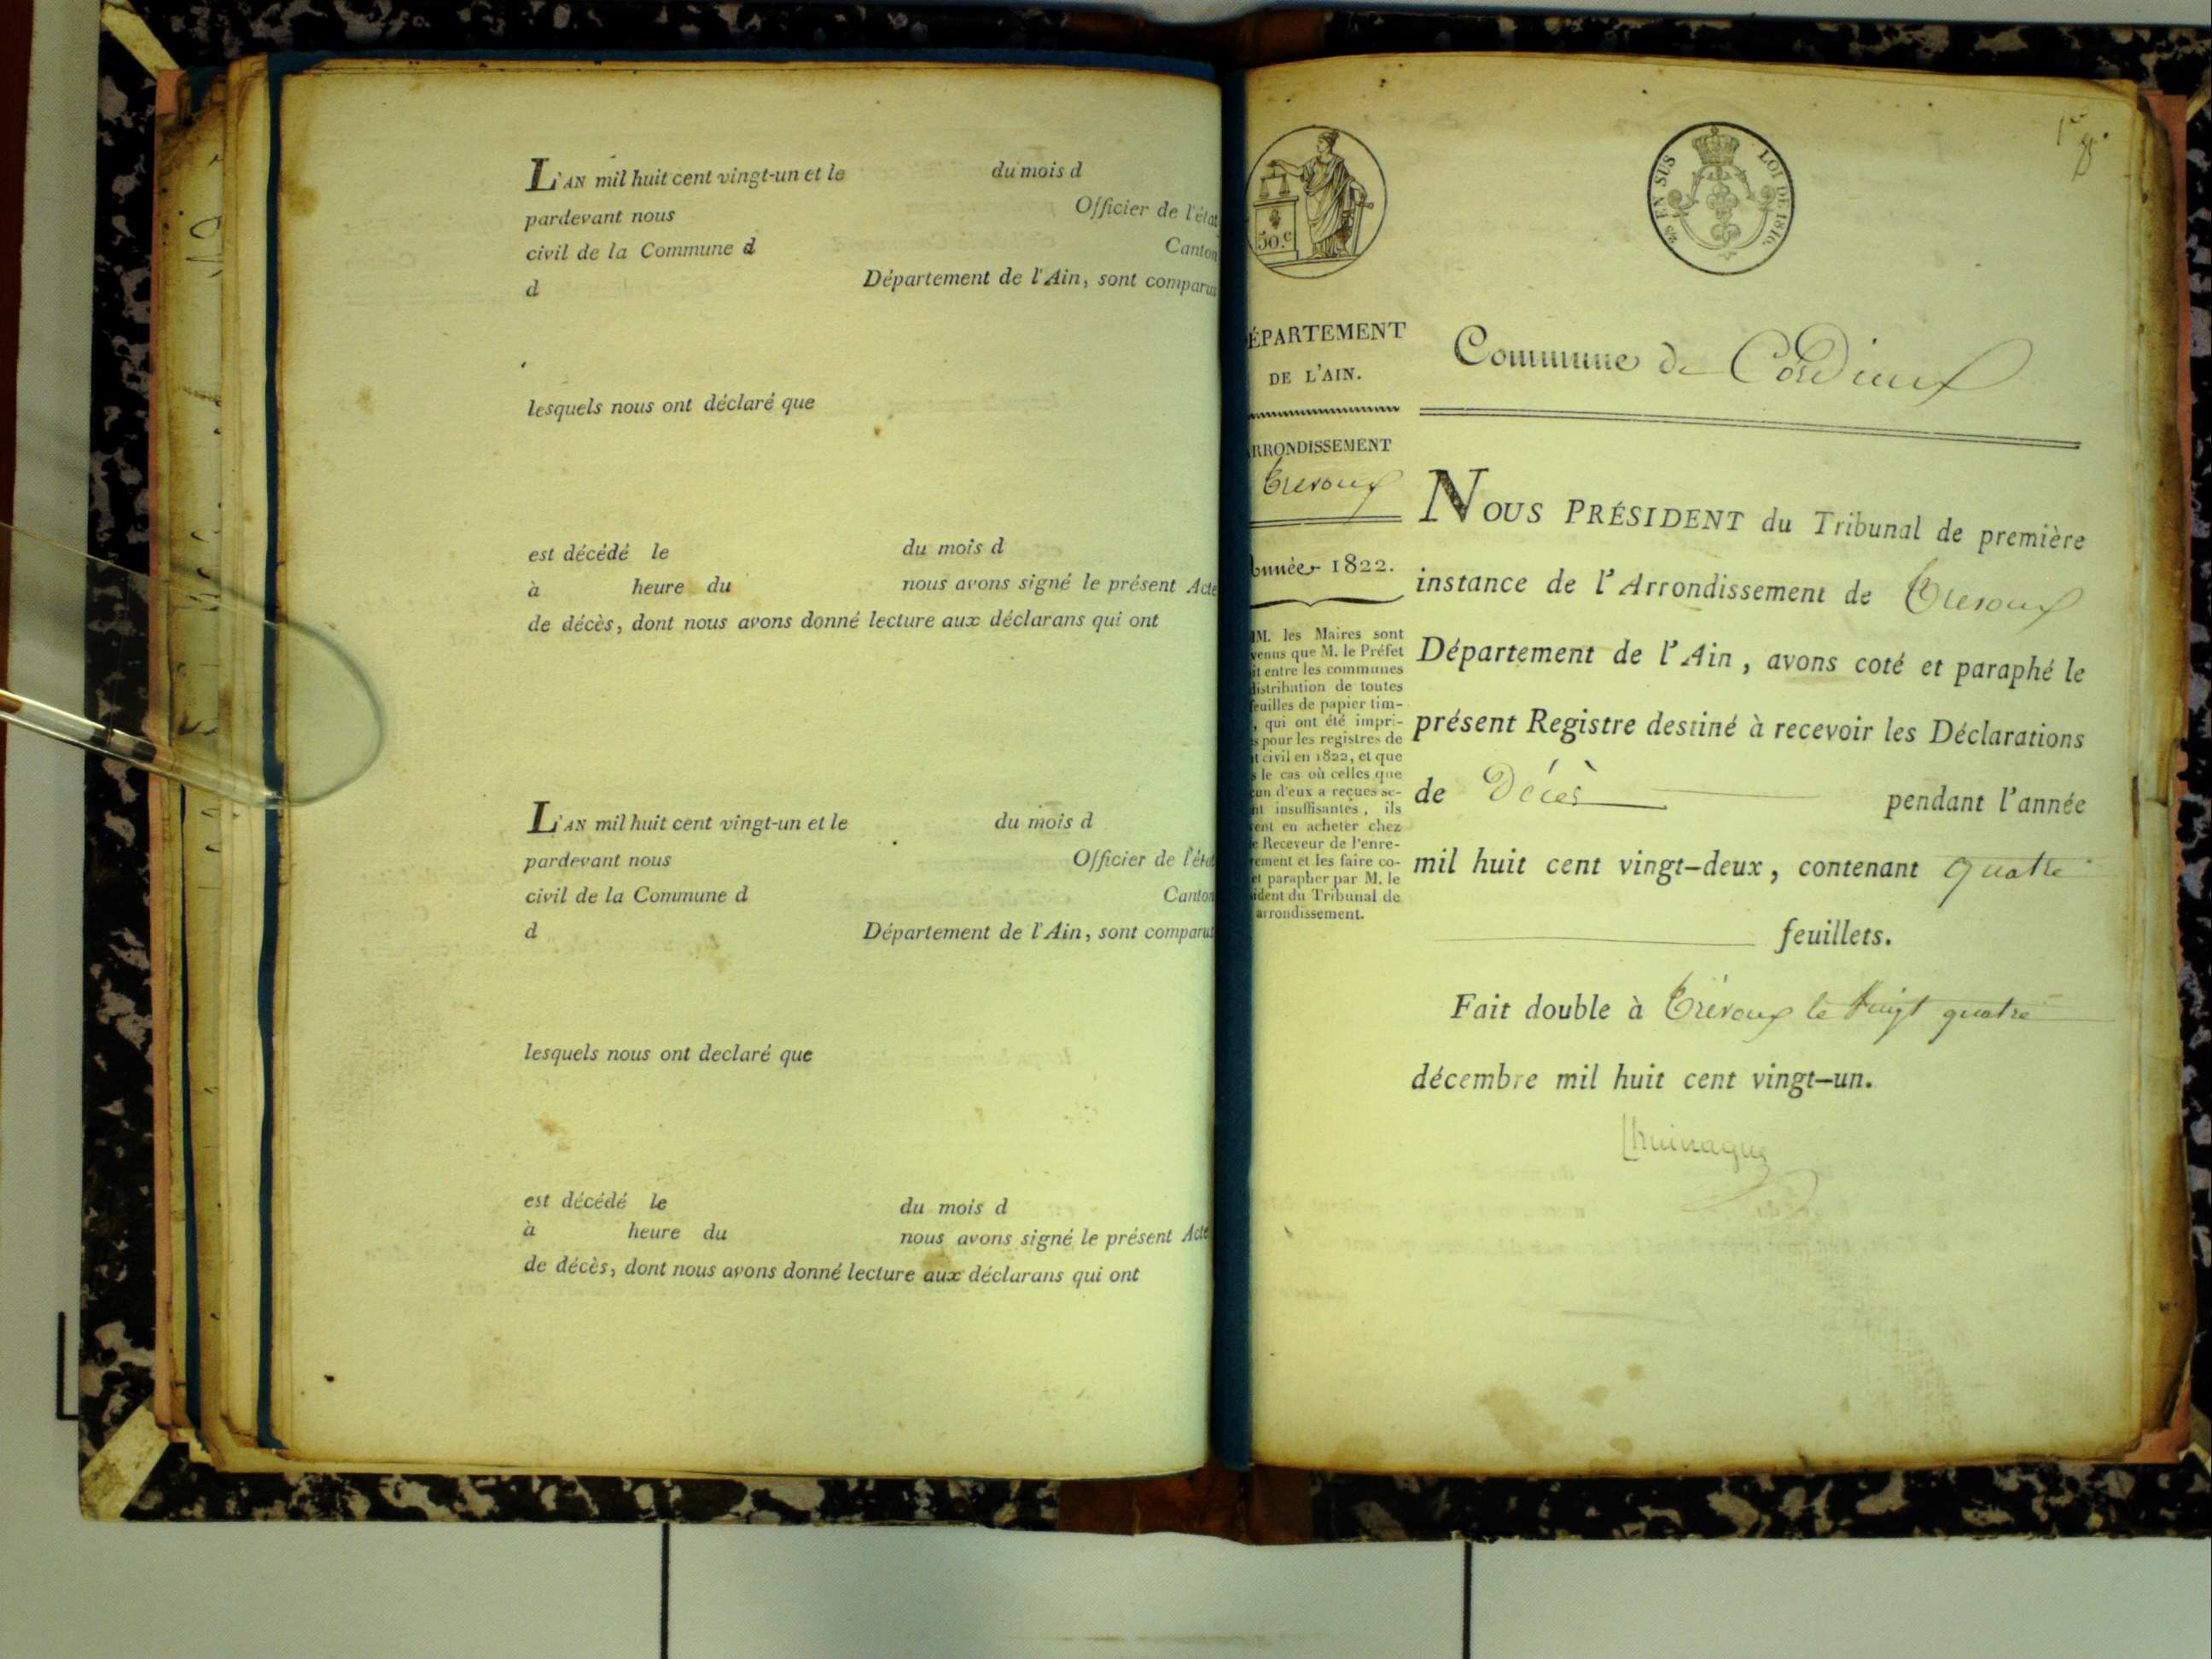 L'AN mil huit cent vingt-un et le du mois d
pardevant nous Officier de l'état
civil de la Commune d Canton
d Département de l'Ain, sont comparus
lesquels nous ont déclaré que
est décédé le du mois d
à heure du nous avons signé le présent Acte
de décès, dont nous avons donné lecture aux déclarans qui ont
L'AN mil huit cent vingt-un et le du mois d
pardevant nous Officier de l'état
civil de la Commune d Canton
d Département de l'Ain, sont comparus
lesquels nous ont declaré que
est décédé le du mois d
à heure du nous avons signé le présent Acte
de décès, dont nous avons donné lecture aux déclarans qui ont
50.c
EN SUS LOI DE 1816.
ÉPARTEMENT
DE L'AIN.
RRONDISSEMENT
Trévoux
Année 1822.
MM. les Maires sont
venus que M. le Préfet
it entre les communes
distribution de toutes
feuilles de papier tim-
, qui ont été impri-
s pour les registres de
t civil en 1822, et que
s le cas où celles que
cun d'eux a reçues se-
nt insuffisantes, ils
vent en acheter chez
e Receveur de l'enre-
rement et les faire co-
et parapher par M. le
ident du Tribunal de
arrondissement.
Commune de Cordieux
NOUS PRÉSIDENT du Tribunal de première
instance de l'Arrondissement de Trévoux
Département de l'Ain, avons coté et paraphé le
présent Registre destiné à recevoir les Déclarations
de Décès pendant l'année
mil huit cent vingt-deux, contenant quatre
feuillets.
Fait double à Trévoux le vingt quatre
décembre mil huit cent vingt-un.